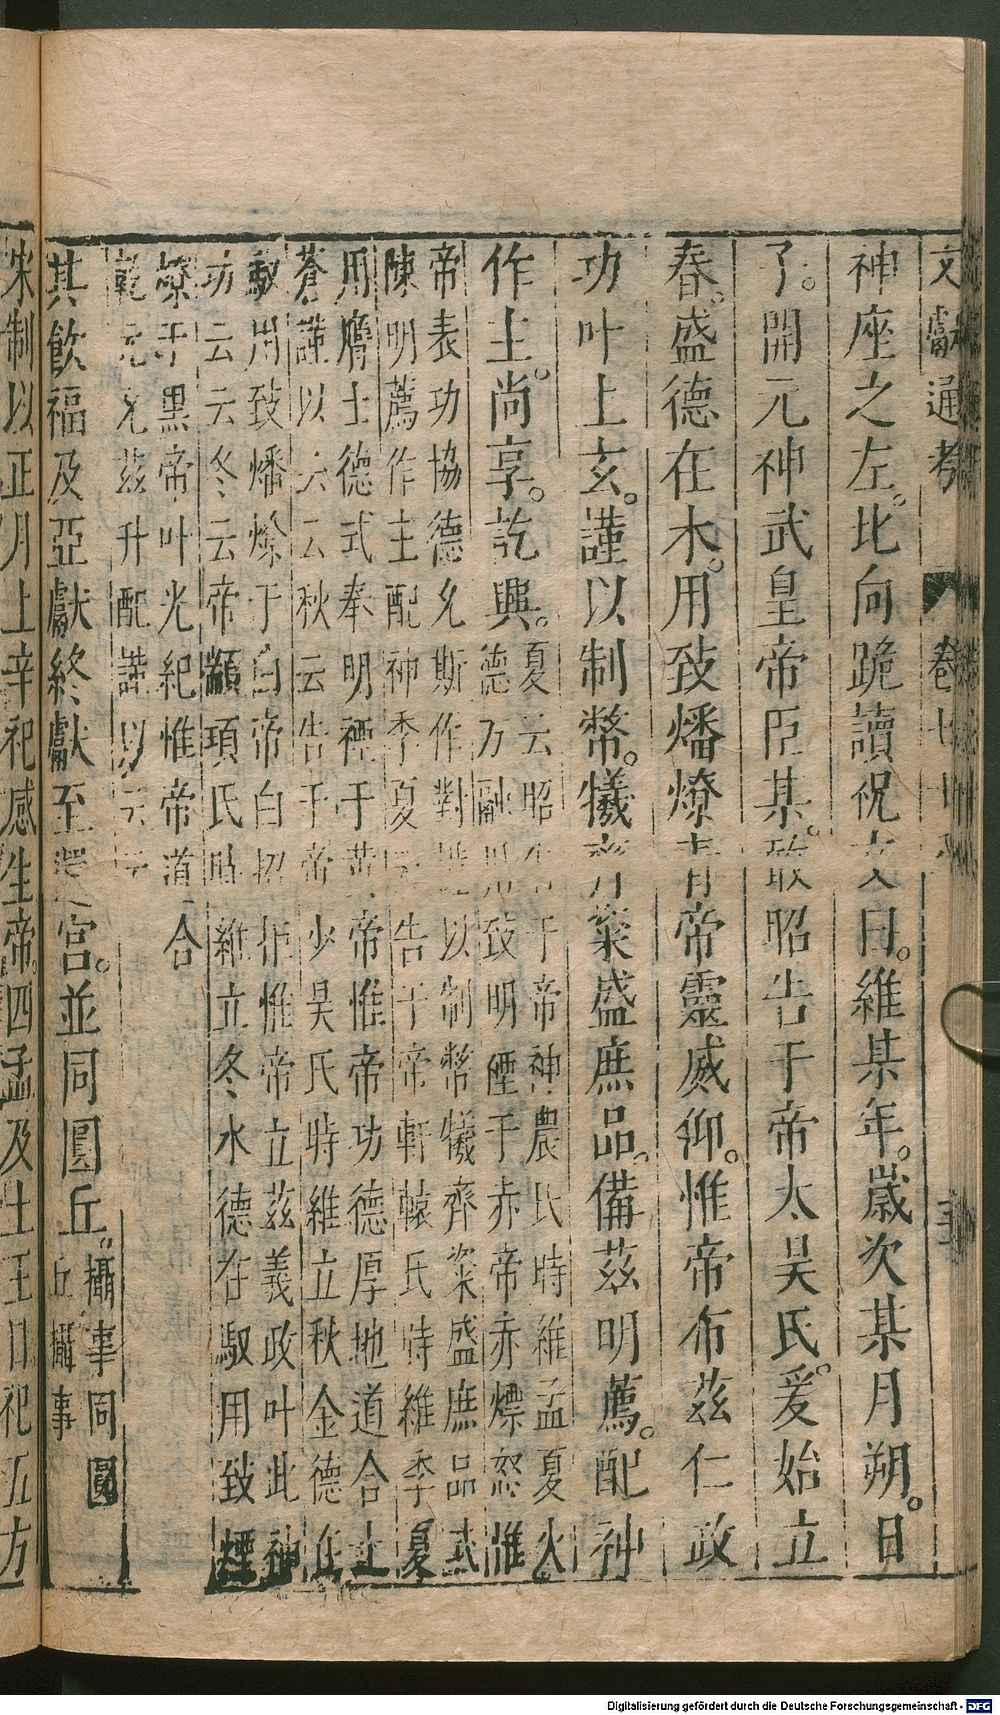 文獻通考 卷七十八
神座之左。北向跪讀祝文曰。維某年。歲次某月朔。日
子。開元神武皇帝臣某。敢昭告于帝太昊氏。爰始立
春。盛德在木。用致燔燎青帝靈威仰。惟帝布茲仁政
功叶上玄。謹以制幣。犧齊粢盛庶品。備茲明薦。配神
作主。尚享。訖興。
夏云昭告于帝神農氏時維孟夏火
德方融用致明禋于赤帝赤熛怒惟
帝表功協德允斯作對謹以制幣犧齊粢盛庶品式
陳明薦作主配神季夏云告于帝軒轅氏時維季夏
用膺土德式奉明禋于黃帝惟帝功德厚地道合上
蒼謹以云云秋云告于帝少昊氏時維立秋金德在
馭用致燔燎于白帝白招拒惟帝立茲義政叶此神
功云云冬云帝顓頊氏時維立冬水德在馭用致煙
燎于黑帝叶光紀惟帝道合
乾元允茲升配謹以云云
其飲福及亞獻終獻至還宮。並同圓丘。
攝事同圓
丘攝事
宋制以正月上辛祀感生帝。四孟及土王日祀五方
Digitalisierung gefördert durch die Deutsche Forschungsgemeinschaft - DFG